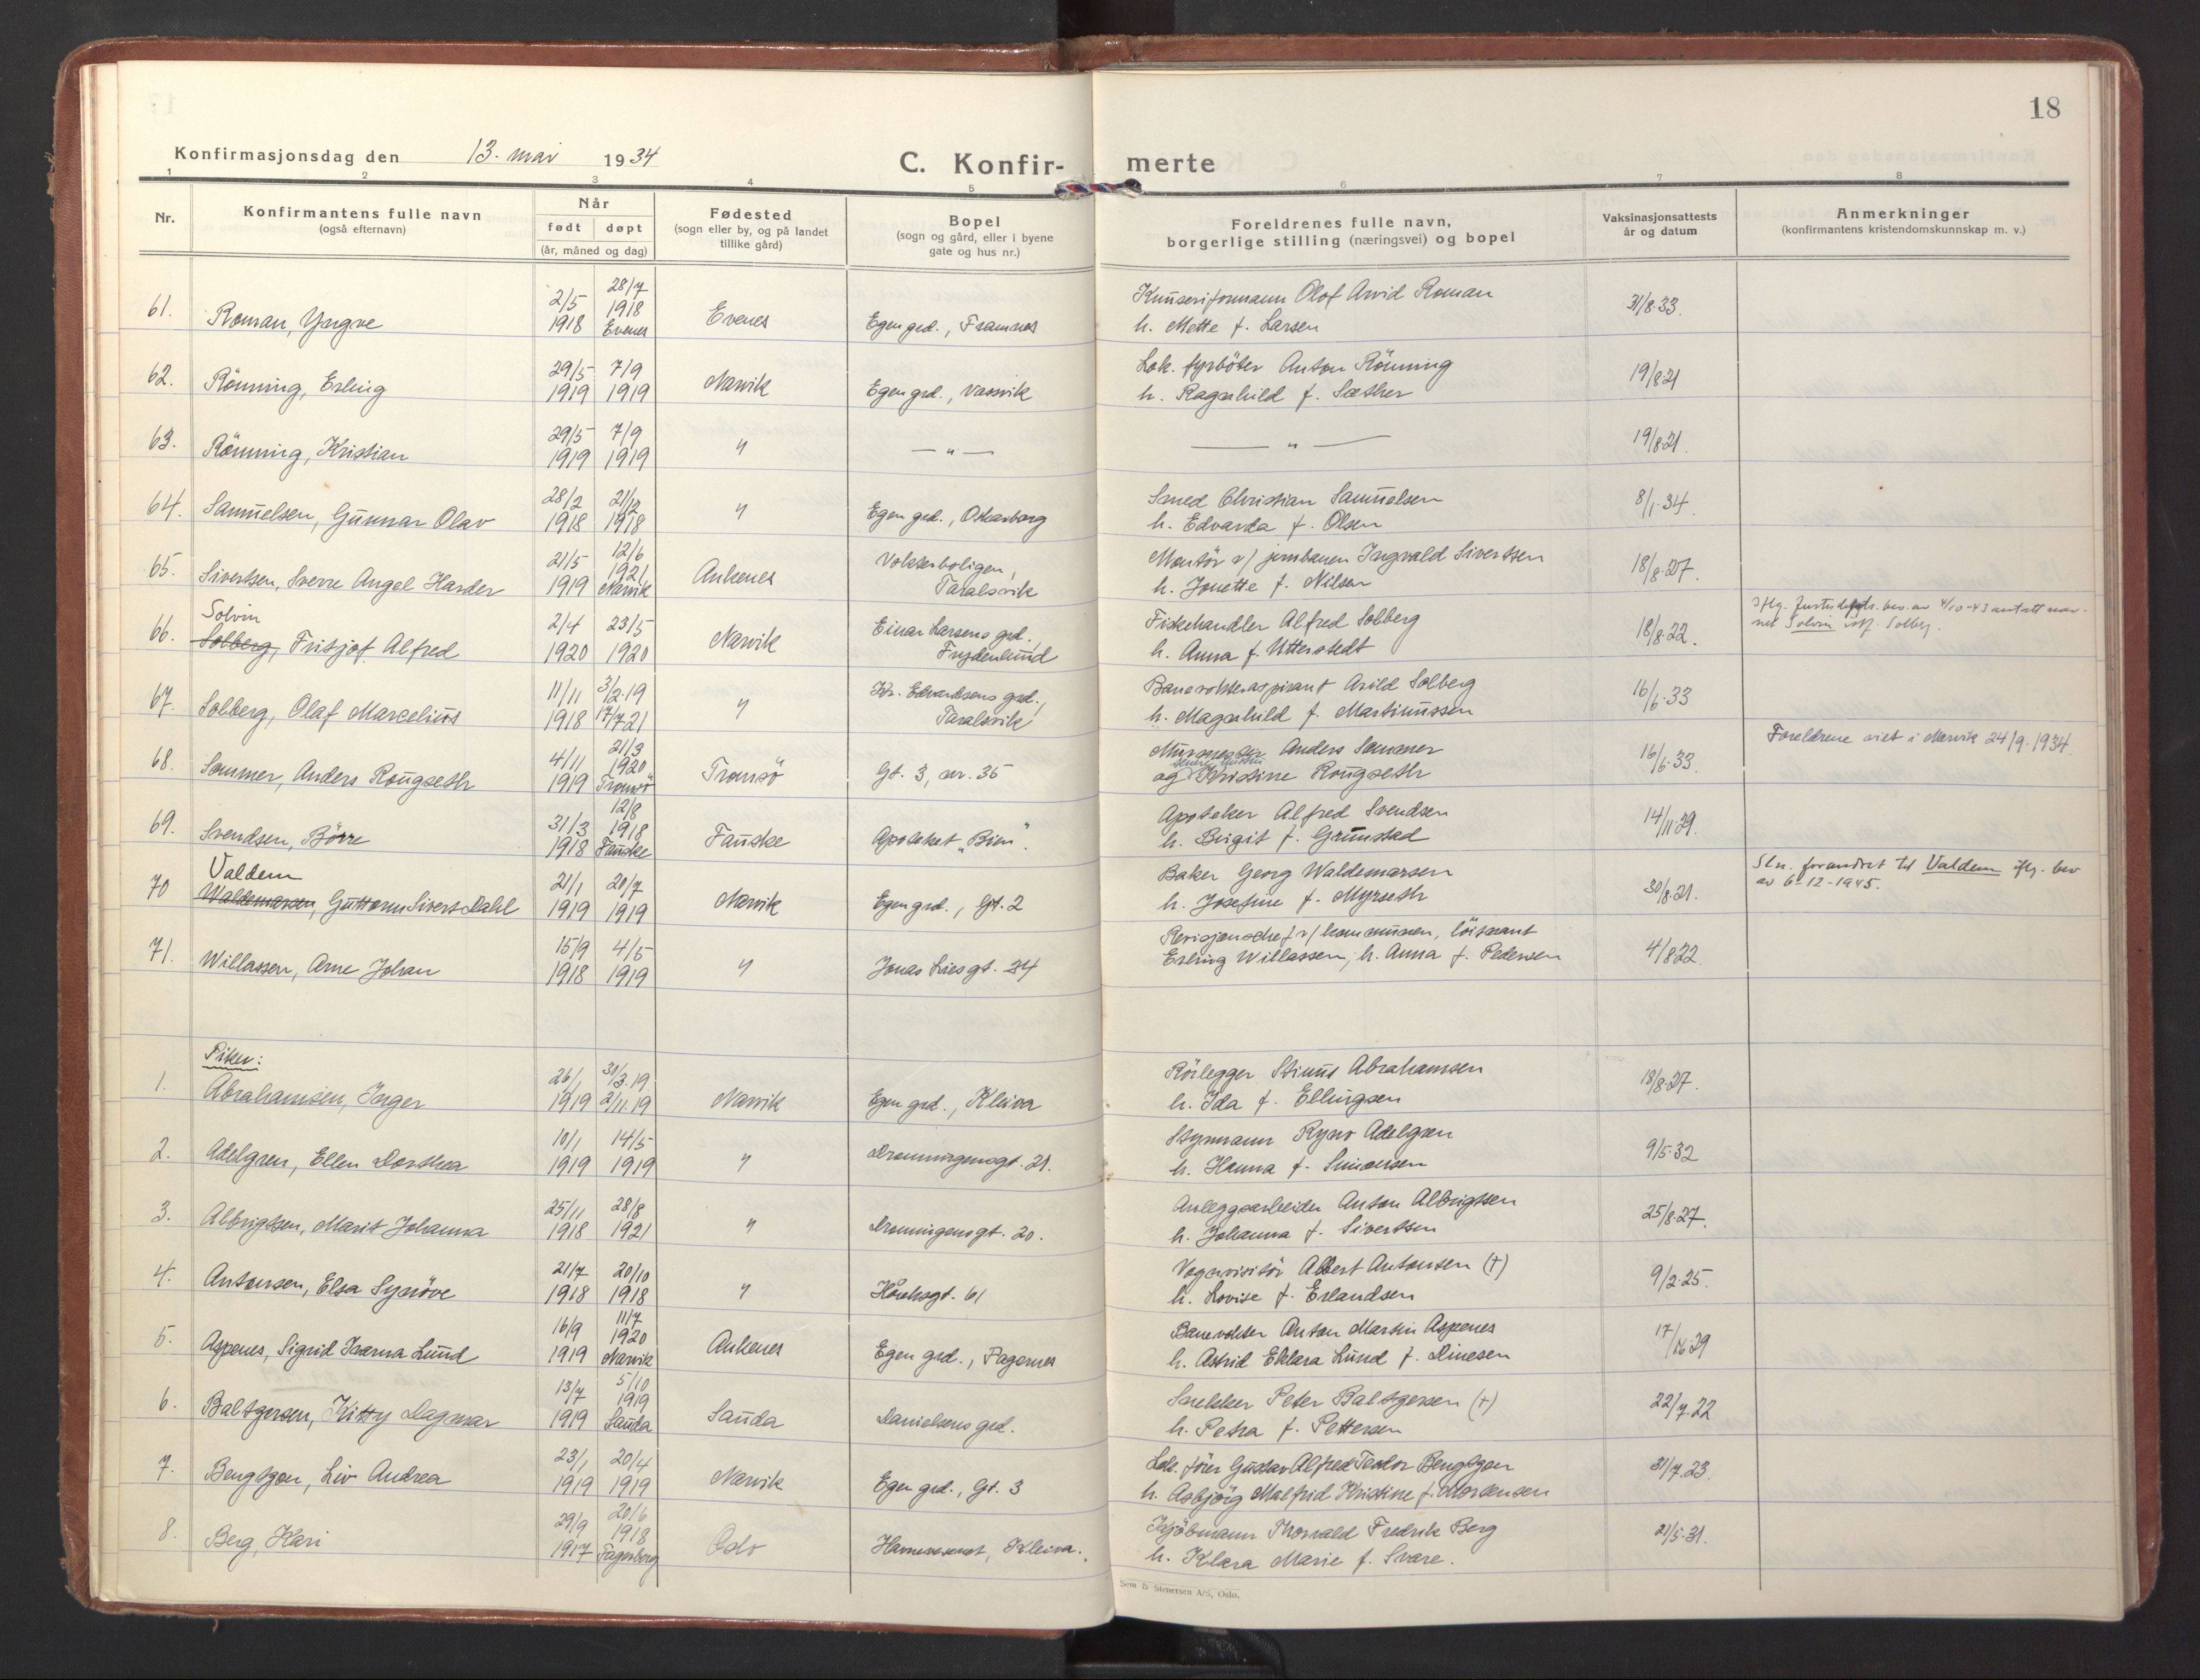 18
Konfirmasjonsdag den 13. mai 1934
C. Konfir- merte
1 2 3 4 5 6 7 8
Nr.
Konfirmantens fulle navn
(også efternavn)
Når
født døpt
(år, måned og dag)
Fødested
(sogn eller by, og på landet
tillike gård)
Bopel
(sogn og gård, eller i byene
gate og hus nr.)
Foreldrenes fulle navn,
borgerlige stilling (næringsvei) og bopel
Vaksinasjonsattests
år og datum
Anmerkninger
(konfirmantens kristendomskunnskap m. v.)
61. Roman, Yngve 2/5 1918 28/7 1918 Evenes Evenes Egen grd., Framnes Olof Arvid Roman
h. Mette f. Larsen 31/8-33.
62. Rönning, Erling 29/5 1919 7/9 1919 Narvik Egen grd., Vassvik Lok. fyrböter Anton Rönning
h. Ragnhild f. Sæther 19/8-21
63. Rönning, Kristian 29/5 1919 7/9 1919 " — " — — " — 19/8-21.
64. Samuelsen, Gunnar Olav 28/2 1918 21/12 1918 " Egen grd., Oskarborg Smed Christian Samuelsen
h. Edvarda f. Olsen 8/1-34.
65. Sivertsen, Sverre Angel Harder 21/5 1919 12/6 1921 Narvik Ankenes Vokterboligen,
Taralsvik Montör v/ jernbanen Ingvald Sivertsen
h. Jonette f. Nilsen 18/8-27.
Solvin
66. Solberg, Fritjof Alfred 2/4 1920 23/5 1920 Narvik Einar Larsens grd.,
Frydenlund Fiskehandler Alfred Solberg
h. Anna f. Utterstedt 18/8-22. Iflg. bev. av 4/10-43 antatt nav-
net Solvin istf. Solberg.
67. Solberg, Olaf Marcelius 11/11 1918 3/2-19 17/7-21 " Kr. Edvardsens grd.,
Taralsvik Banevokteraspirant Arild Solberg
h. Magnhild f. Martinussen 16/6-33
68. Sommer, Anders Rougseth 4/11 1919 21/3 1920 Tromsö Tromsö Gt. 3, nr. 35 Murmester Anders Sommer
og Kristine Rougseth 16/6-33. Foreldrene viet i Narvik 24/9-1934.
69. Svendsen, Börre 31/3 1918 12/8 1918 Fauske Fauske Apoteket „Bien". Apoteker Alfred Svendsen
h. Birgit f. Grimstad 14/11-29.
Valdem
70 Waldemarsen, Guttorm Sivert Dahl 21/1 1919 20/7 1919 Narvik Egen grd., Gt. 2 Baker Georg Waldemarsen
h. Josefine f. Myrseth 30/8-21. Sln. forandret til Valdem iflg. bev
av 6-12-1945.
71. Willassen, Arne Johan 15/9 1918 4/5 1919 " Jonas Liesgt. 24 Revisjonschef v/ kommunen, löitnant
Erling Willassen, h. Anna f. Pedersen 4/8 22.
Piker:
1. Abrahamsen, Inger 26/1 1919 30/3-19 2/11-19 Narvik Egen grd., Kleiva Rörlegger Abrahamsen
h. Ida f. Ellingsen 18/8-27.
2. Adelgren, Ellen Dorthea 10/1 1919 14/5 1919 " Dronningensgt. 21. Styrmann Ryno Adelgren
h. Hanna f. Simonsen 9/5-32
3. Albrigtsen, Marit Johanna 25/11 1918 28/8 1921 " Dronningensgt. 20. Anleggsarbeider Anton Albrigtsen
h. Johanna f. Sivertsen 25/8-27.
4. Antonsen, Elsa Synöve 21/7 1918 20/10 1918 " Håreksgt. 61 Vognvisitör Albert Antonsen (†)
h. Lovise f. Erlandsen 9/2-25.
5. Aspenes, Sigrid Lund 16/9 1919 11/7 1920 Narvik Ankenes Egen grd., Fagernes Banevokter Anton Martin Aspenes
h. Astrid Eklara Lund f. Dinesen 17/ 29
6. Baltzersen, Kitty Dagmar 13/7 1919 5/10 1919 Sauda Sauda Danielsens grd. Snekker Peter Baltzersen (†)
h. Petra f. Pettersen 22/7-22
7. Bengtzon, Liv Andrea 23/1 1919 20/4 1919 Narvik Egen grd., Gt. 3 Lok. förer Gustav Alfred Teodor Bengtzon
h. Asbjörg Malfrid Kristine f. Mortensen 31/7-23.
8. Berg, Kari 29/9 1917 20/6 1918 Fagerborg Oslo Havnevesenet, Kleiva. Kjöbmann Thorvald Fredrik Berg
h. Klara Marie f. Svare. 21/5-31.
Sem & Stenersen A/S, Oslo.